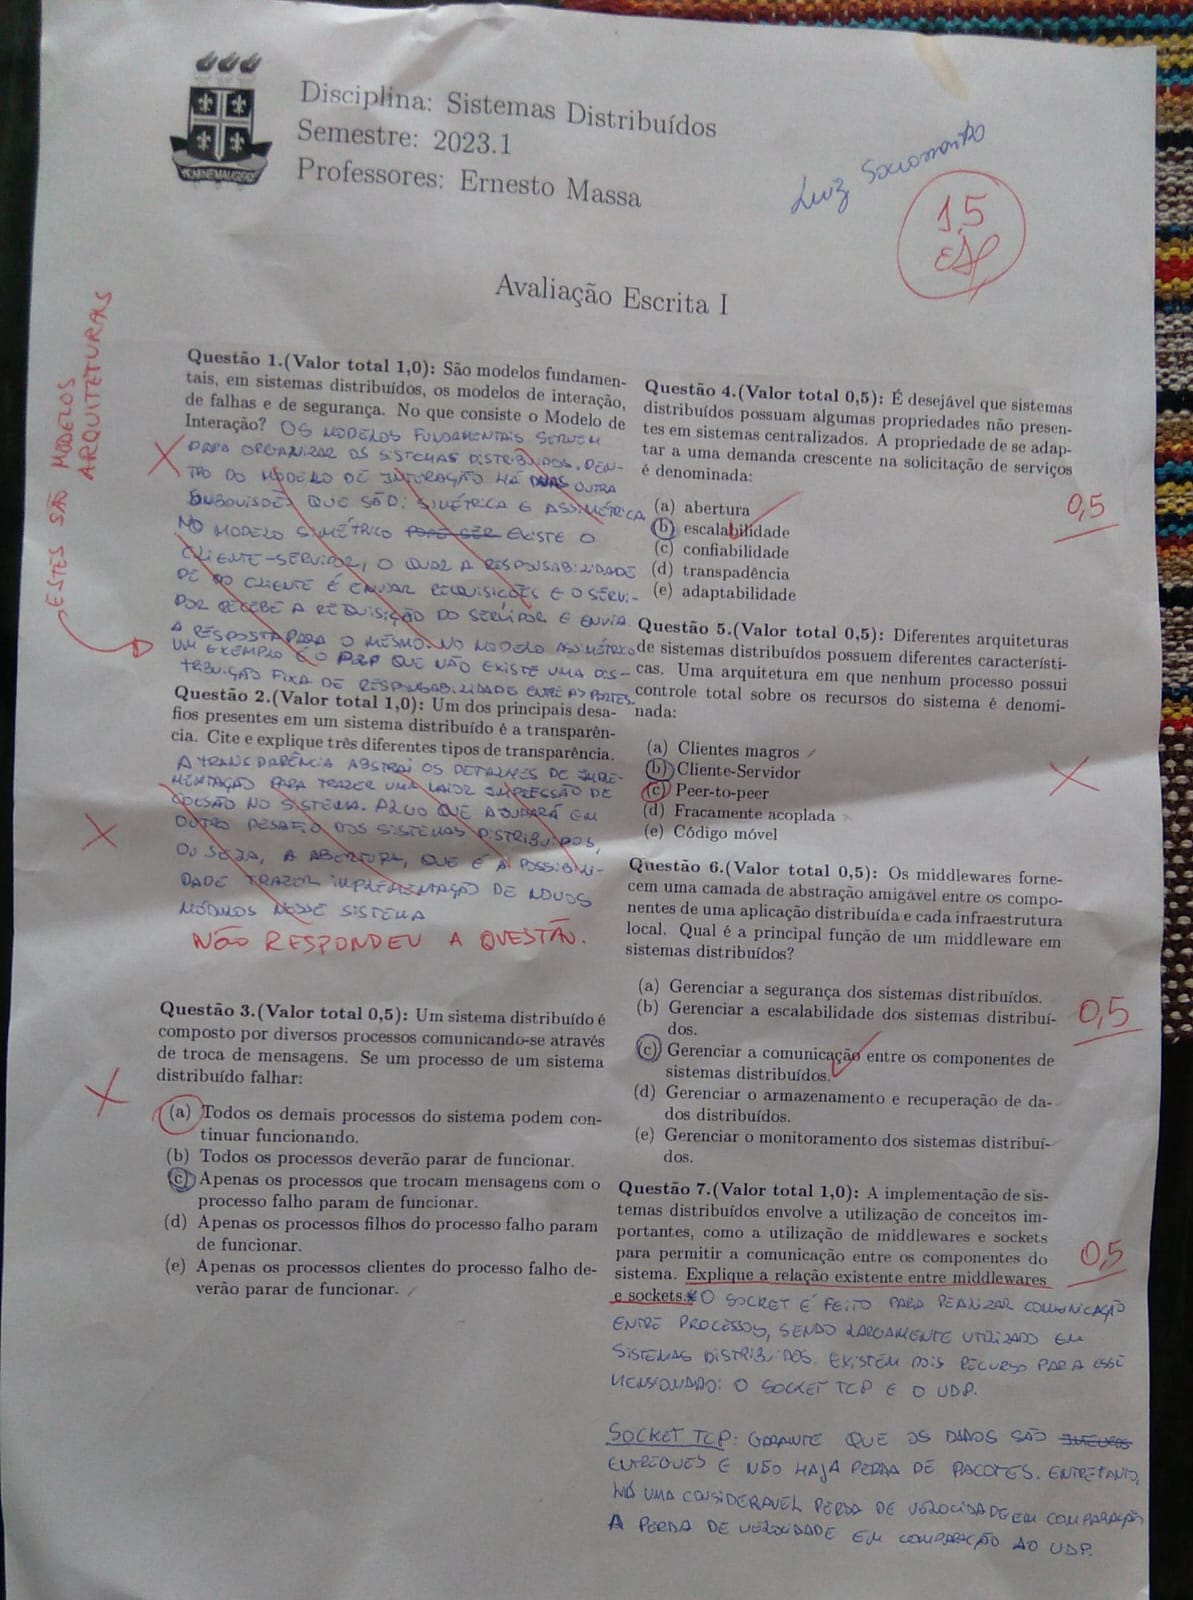 Disciplina: Sistemas Distribuídos
Semestre: 2023.1
Professores: Ernesto Massa
HOMINEM AUGERE
Luiz
1,5
Avaliação Escrita I
ESTES SÃO MODELOS
ARQUITETURAIS
Questão 1.(Valor total 1,0): São modelos fundamen-
tais, em sistemas distribuídos, os modelos de interação,
de falhas e de segurança. No que consiste o Modelo de
Interação? OS MODELOS FUNDAMENTAIS SERVEM
PARA ORGANIZAR OS SISTEMAS DISTRIBUÍDOS. DEN-
TRO DO MODELO DE INTERAÇÃO HÁ DUAS OUTRA
SUBDIVISÕES QUE SÃO: SIMÉTRICA E ASSIMÉTRICA
NO MODELO SIMÉTRICO PODE SER EXISTE O
CLIENTE-SERVIDOR, O QUAL A RESPONSABILIDADE
DE DO CLIENTE É ENVIAR REQUISIÇÕES E O SERVI-
DOR RECEBE A REQUISIÇÃO DO SERVIDOR E ENVIA
A RESPOSTA PARA O MESMO. NO MODELO ASSIMÉTRICO
UM EXEMPLO É O P2P QUE NÃO EXISTE UMA DIS-
TRIBUIÇÃO FIXA DE RESPONSABILIDADE ENTRE AS PARTES.
Questão 2.(Valor total 1,0): Um dos principais desa-
fios presentes em um sistema distribuído é a transparên-
cia. Cite e explique três diferentes tipos de transparência.
A TRANSPARÊNCIA ABSTRAI OS DETALHES DE IMPLE-
MENTAÇÃO PARA TRAZER UMA MAIOR IMPRESSÃO DE
COESÃO NO SISTEMA. ALGO QUE AJUDARÁ EM
OUTRO DESAFIO DOS SISTEMAS DISTRIBUÍDOS,
OU SEJA, A ABERTURA, QUE É A POSSIBILI-
DADE TRAZER IMPLEMENTAÇÃO DE NOVOS
MÓDULOS NESSE SISTEMA
NÃO RESPONDEU A QUESTÃO.
Questão 3.(Valor total 0,5): Um sistema distribuído é
composto por diversos processos comunicando-se através
de troca de mensagens. Se um processo de um sistema
distribuído falhar:
(a) Todos os demais processos do sistema podem con-
tinuar funcionando.
(b) Todos os processos deverão parar de funcionar.
(c) Apenas os processos que trocam mensagens com o
processo falho param de funcionar.
(d) Apenas os processos filhos do processo falho param
de funcionar.
(e) Apenas os processos clientes do processo falho de-
verão parar de funcionar.
Questão 4.(Valor total 0,5): É desejável que sistemas
distribuídos possuam algumas propriedades não presen-
tes em sistemas centralizados. A propriedade de se adap-
tar a uma demanda crescente na solicitação de serviços
é denominada:
0,5
(a) abertura
(b) escalabilidade
(c) confiabilidade
(d) transpadência
(e) adaptabilidade
Questão 5.(Valor total 0,5): Diferentes arquiteturas
de sistemas distribuídos possuem diferentes característi-
cas. Uma arquitetura em que nenhum processo possui
controle total sobre os recursos do sistema é denomi-
nada:
(a) Clientes magros
(b) Cliente-Servidor
(c) Peer-to-peer
(d) Fracamente acoplada
(e) Código móvel
Questão 6.(Valor total 0,5): Os middlewares forne-
cem uma camada de abstração amigável entre os compo-
nentes de uma aplicação distribuída e cada infraestrutura
local. Qual é a principal função de um middleware em
sistemas distribuídos?
(a) Gerenciar a segurança dos sistemas distribuídos.
(b) Gerenciar a escalabilidade dos sistemas distribuí-
dos.
0,5
(c) Gerenciar a comunicação entre os componentes de
sistemas distribuídos.
(d) Gerenciar o armazenamento e recuperação de da-
dos distribuídos.
(e) Gerenciar o monitoramento dos sistemas distribuí-
dos.
Questão 7.(Valor total 1,0): A implementação de sis-
temas distribuídos envolve a utilização de conceitos im-
portantes, como a utilização de middlewares e sockets
para permitir a comunicação entre os componentes do
sistema. Explique a relação existente entre middlewares
e sockets.* O SOCKET É FEITO PARA REALIZAR COMUNICAÇÃO
0,5
ENTRE PROCESSOS, SENDO LARGAMENTE UTILIZADO EM
SISTEMAS DISTRIBUIDOS. EXISTEM DOIS RECURSO PARA ESSE
MENSIONADO: O SOCKET TCP E O UDP.
SOCKET TCP: GARANTE QUE OS DADOS SÃO
ENTREGUES E NÃO HAJA PERDA DE PACOTES. ENTRETANTO,
HÁ UMA CONSIDERAVEL PERDA DE VELOCIDADE EM COMPARAÇÃO
A PERDA DE VELOCIDADE EM COMPARAÇÃO AO UDP.